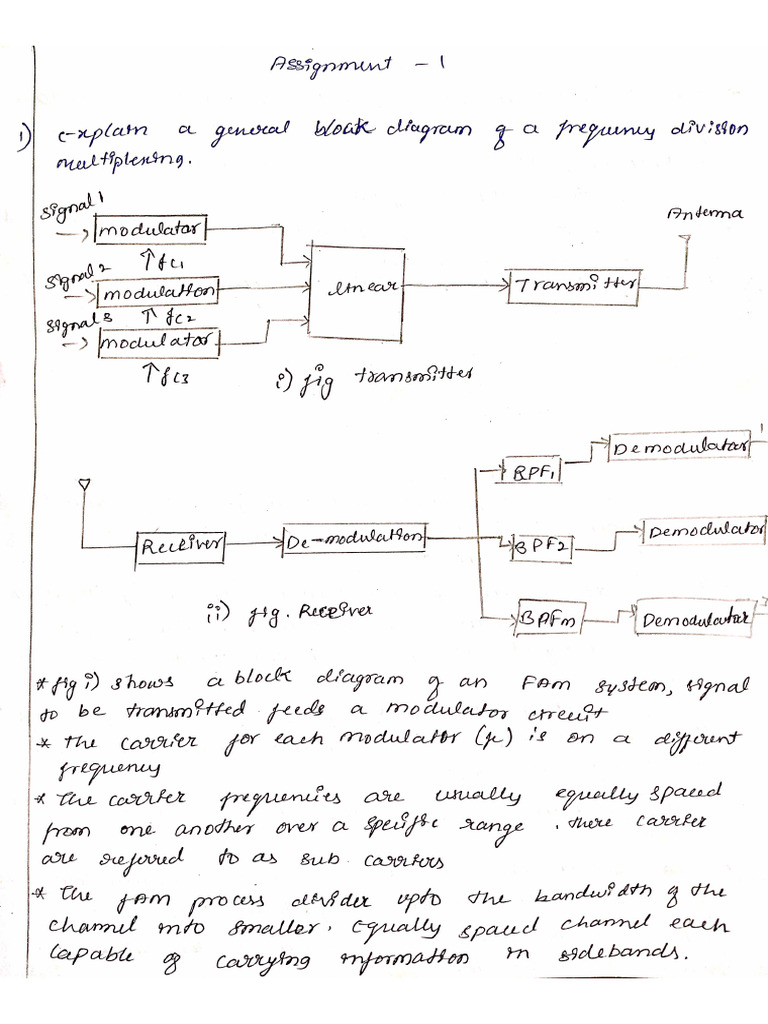 Assignment - 1
1) Explain a general block diagram of a frequency division
multiplexing.
Signal 1
modulator
↑ fc1
Signal 2
modulation
↑ fc2
Signal 3
modulator
↑ fc3
linear
Transmitter
Antenna
i) fig transmitter
Receiver
De-modulation
BPF1
Demodulator
1
BPF2
Demodulator
BPFn
Demodulator
ii) fig. Receiver
* fig i) shows a block diagram of an FDM system, signal
to be transmitted feeds a modulator circuit
* The carrier for each modulator (fc) is on a different
frequency
* The carrier frequencies are usually equally spaced
from one another over a specific range. there carrier
are referred to as sub carriers
* The FDM process devider upto the bandwidth of the
channel into smaller, Equally spaced channel each
capable of carrying information in sidebands.